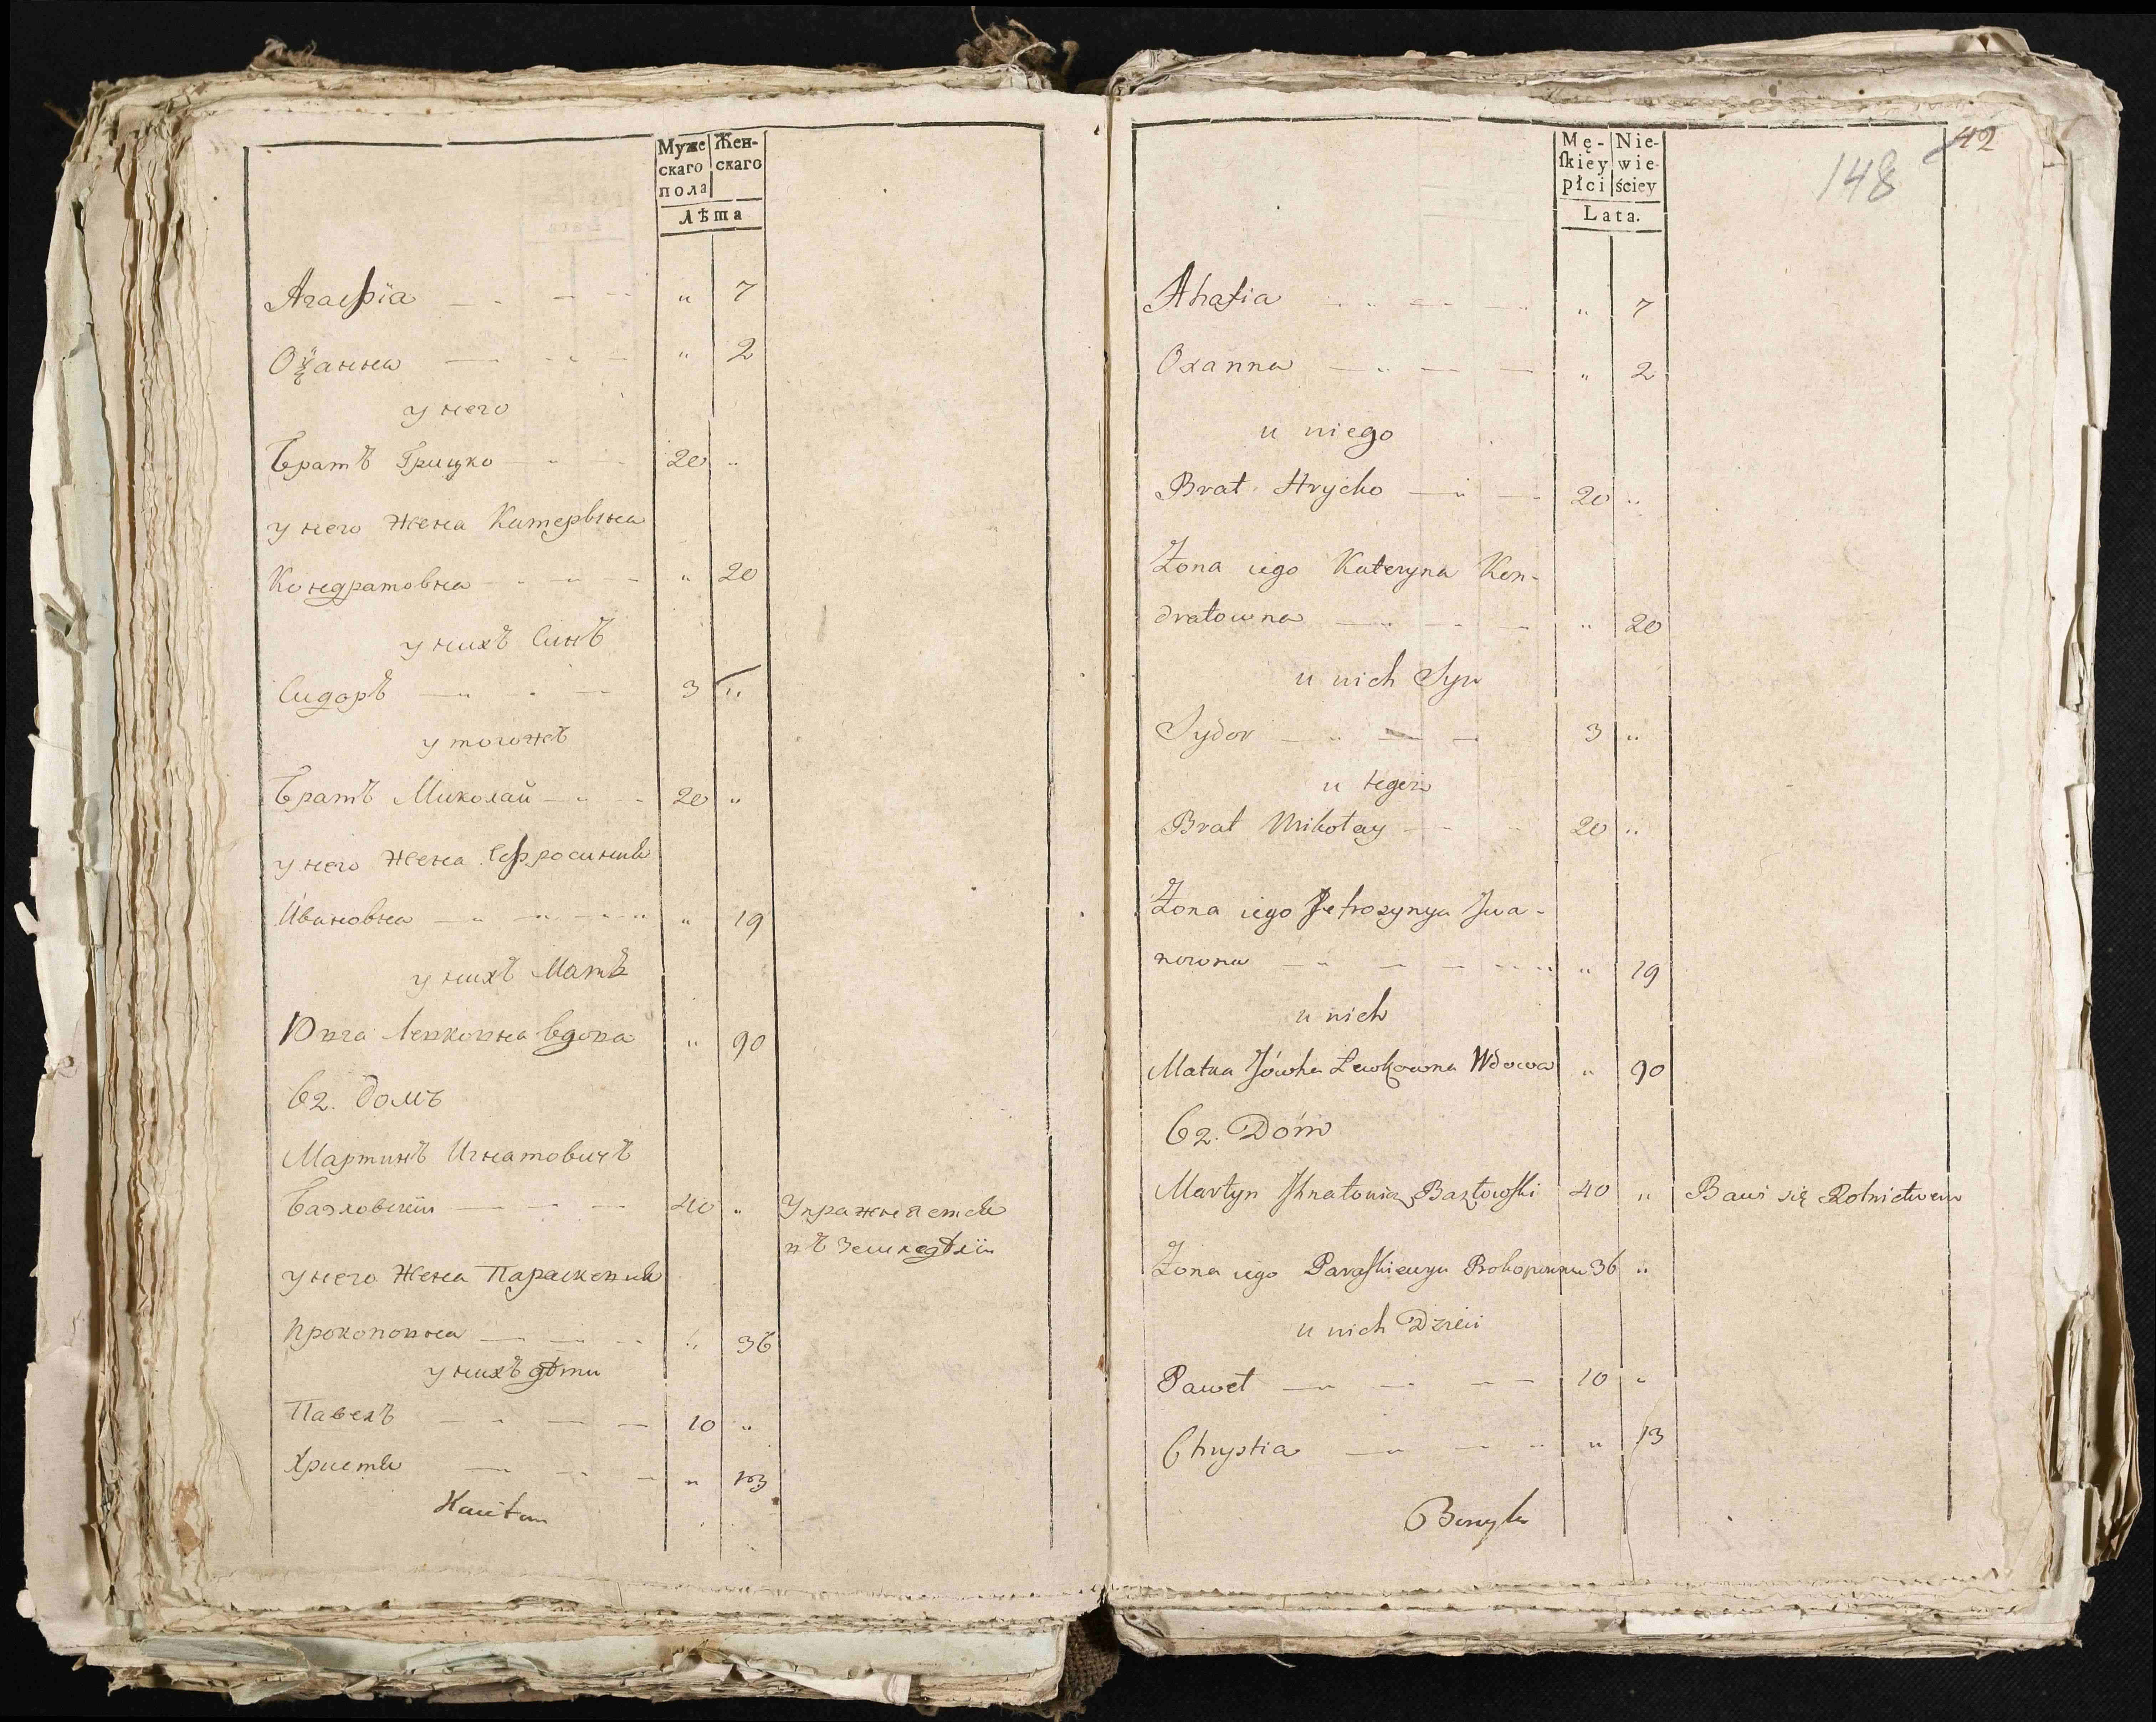 Муже
скаго
пола
Жен-
скаго
Лѣта
Агаѳіа " 7
Оѯанна " 2
у него
Братъ Грицко 20 "
у него жена Катерына
Кондратовна " 20
у нихъ Синъ
Сидоръ 3 "
у тогожъ
Братъ Миколай 20 "
у него жена
Ивановна " 19
у нихъ Мать
Ювга Левковна вдова " 90
62. домъ
Мартинъ Игнатовичъ
Базловскій 40 " Упражняется
въ Земледѣліи
у него Жена Параскевия
Прокоповна " 36
у нихъ дѣти
Павелъ 10 "
Христя " 13
Mę-
ſkiey
płci
Nie-
wie-
ściey
Lata.
42
148
Ahafia " 7
Oxanna " 2
u niego
Brat Hrycko 20 "
Żona iego Kateryna Kon-
dratowna " 20
u nich Syn
Sydor 3 "
u tegoż
Brat Mikołay 20 "
Żona iego Jefrozynya Iwa-
nowna " 19
u nich
Matka Jówha Lewkowna Wdowa " 90
62. Dóm
Martyn Ihnatowicz Bazłowſki 40 " Bawi się Rolnictwem
Żona iego Paraſkiewya Prokopowna 36 "
u nich Dzieci
Paweł 10 "
Chrystia " 13